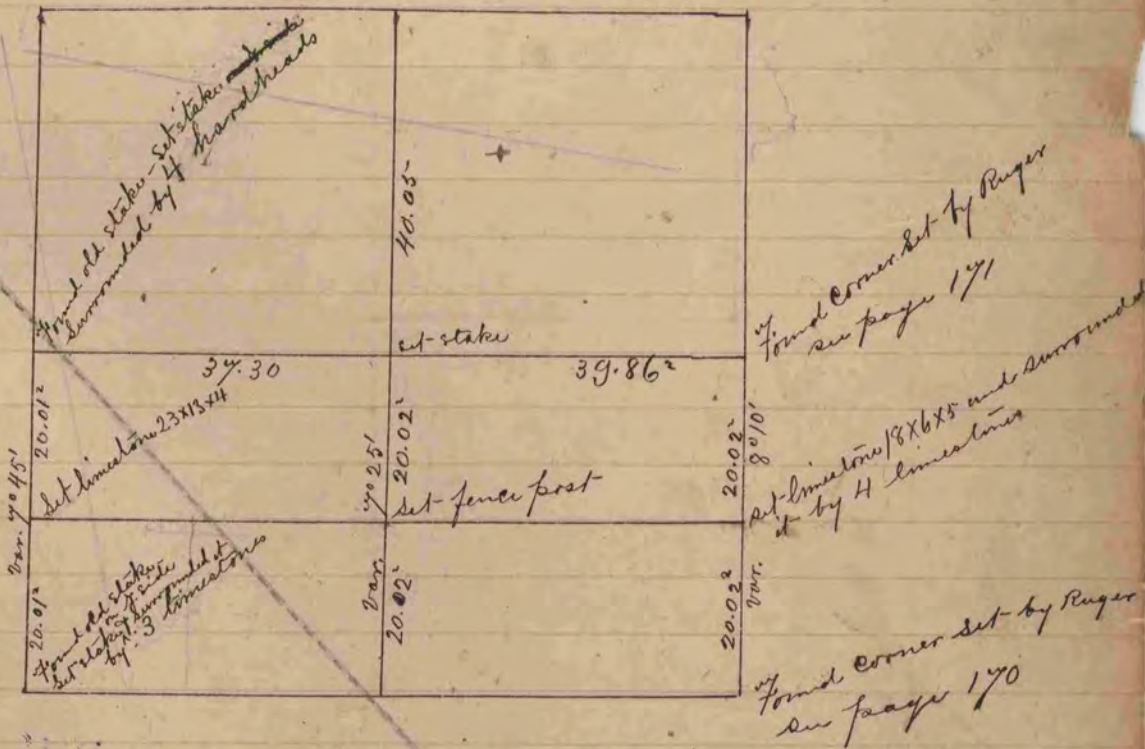 Found old stake - Set stake
Surrounded by 4 hard heads
40.05
Found Corner Set by Ruger
see page 171
set stake
37.30
39.86²
20.01²
Set limestone 23x13x4
Var. 7° 45'
7° 25'
20.02²
Set fence post
20.02²
8° 10'
set limestone 18x6x5 and surrounded
it by 4 limestones
20.01²
Found old stake
on side
Set stake & surrounded it
by 3 limestones
Var.
20.02²
20.02²
Var.
Found corner set by Ruger
see page 170